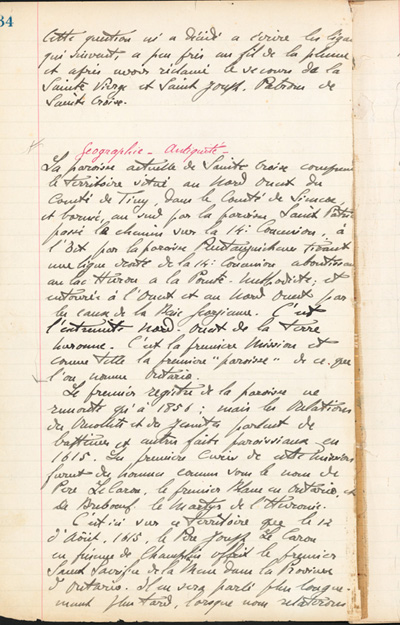 34
Cette question m'a décidé a écrire les lignes
qui suivent, a peu près au fil de la plume
et après avoir réclamé le secours de la
Sainte Vierge et Saint Joseph, Patrons de
Sainte Croix.
Geographie - Antiquité -
La paroisse actuelle de Sainte Croix comprend
le territoire situé au Nord Ouest du
Comté de Tiny, dans le Comté de Simcoe
et borné, au sud par la paroisse Saint Patrice
le chemin sur la 14e Concession, à
l'Est par la paroisse Penetanguishene
une ligne droite de la 14e Concession aboutissant
au lac Huron a la Pointe Methodiste; et
entourée à l'Ouest et au Nord Ouest par
les eaux de la Baie Georgienne. C'est
l'extremité Nord-Ouest de la Terre
huronne. C'est la première Mission et
comme telle la première "paroisse" de ce que
l'on nomme Ontario.
Le premier registre de la paroisse ne
remonte qu'à 1856; mais les Relations
des Recollets et des Jesuites parlent de
baptêmes et autres faits paroissiaux en
1615. Les premiers Curés de cette mission
furent des hommes connus sous le nom de
Pere Le Caron, le premier Blanc en Ontario, et
de Brebeuf, le Martyr de l'Huronie.
C'est ici sur ce Territoire que le 12
d'Août, 1615, le Pere Joseph Le Caron
en présence de Champlain offrit le premier
Saint Sacrifice de la Messe dans la Province
d'Ontario. Il en sera parlé plus longue-
ment plus tard, lorsque nous relaterons